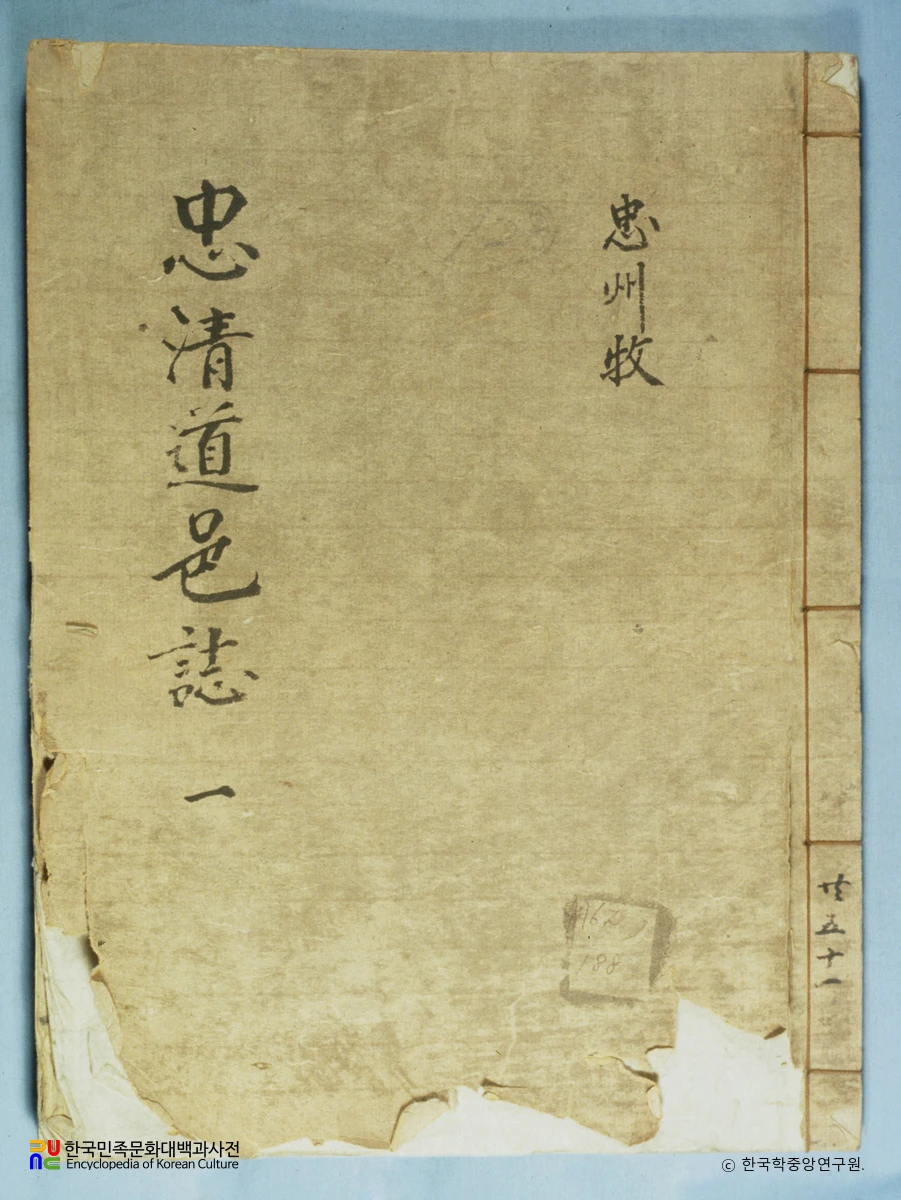 忠州牧
忠清道邑誌 一
共五十一
188
한국민족문화대백과사전
Encyclopedia of Korean Culture
© 한국학중앙연구원.